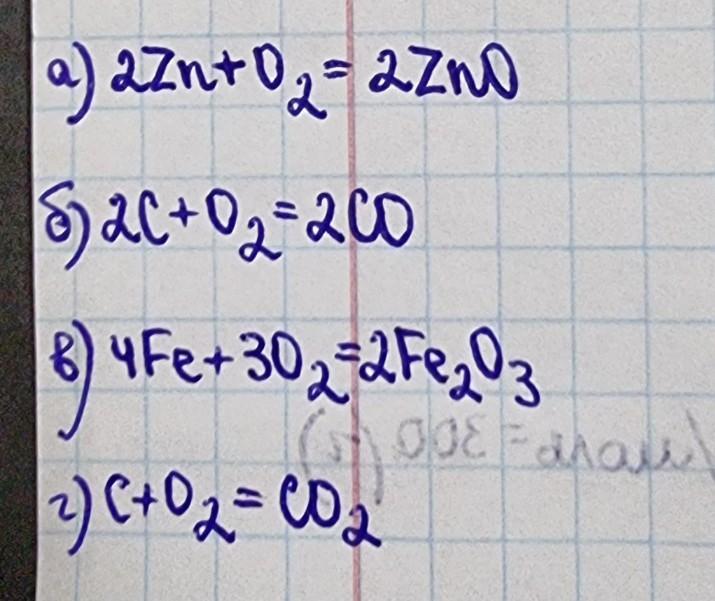 а) 2Zn+O₂= 2ZnO
б) 2C+O₂=2CO
в) 4Fe+3O₂=2Fe₂O₃
г) C+O₂= CO₂